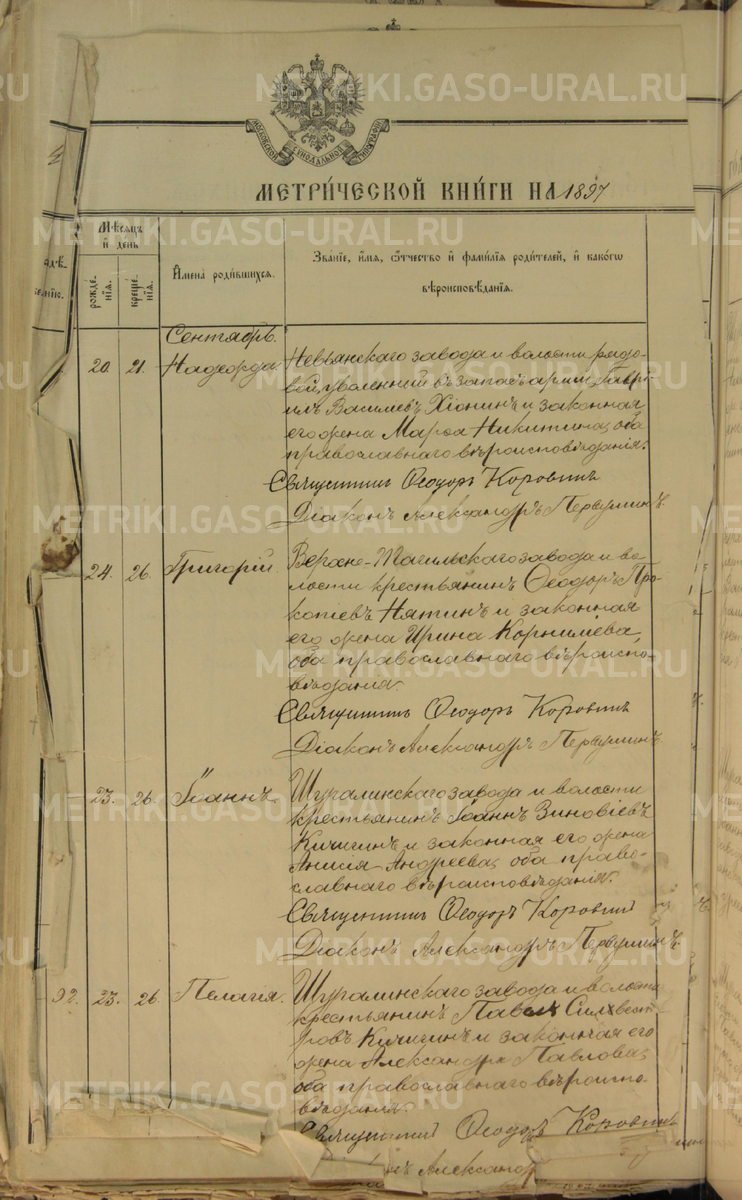 METRIKI.GASO-URAL.RU
МОСКОВСКОЙ СѴНОДАЛЬНОЙ ТИПОГРАФІИ
МЕТРИ́ЧЕСКОЙ КНИ́ГИ НА 1897
Мѣсяцъ и день
рожде́нія.
креще́нія.
Имена̀ роди́вшихся.
Зва́ніе, и́мя, ѻ́тчество и фами́лія роди́телей, и како́гѡ
вѣроисповѣ́данія.
Сентябрь.
20. 21. Надежда. Невьянскаго завода и волости рядо-
вой, уволенный въ запасъ арміи, Гаврі-
илъ Васильевъ Хіонинъ и законная
его жена Марѳа Никитина, оба
православнаго вѣроисповѣданія.
Священникъ Ѳеодоръ Коровинъ
Діаконъ Александръ Первушинъ.
24. 26. Григорій. Верхне-Тагильскаго завода и во-
лости крестьянинъ Ѳеодоръ Про-
копіевъ Нятинъ и законная
его жена Ирина Корнилiева,
оба православнаго вѣроиспо-
вѣданія.
Священникъ Ѳеодоръ Коровинъ
Діаконъ Александръ Первушинъ.
23. 26. Іоаннъ. Шуралинскаго завода и волости
крестьянинъ Іоаннъ Зиновіевъ
Кичигинъ и законная его жена
Анисія Андреева, оба право-
славнаго вѣроисповѣданія.
Священникъ Ѳеодоръ Коровинъ
Діаконъ Александръ Первушинъ.
92. 23. 26. Пелагія. Шуралинскаго завода и волости
крестьянинъ Павелъ Силвест-
ровъ Кичигинъ и законная его
жена Александра Павлова,
оба православнаго вѣроиспо-
вѣданія.
Священникъ Ѳеодоръ Коровинъ
Александръ